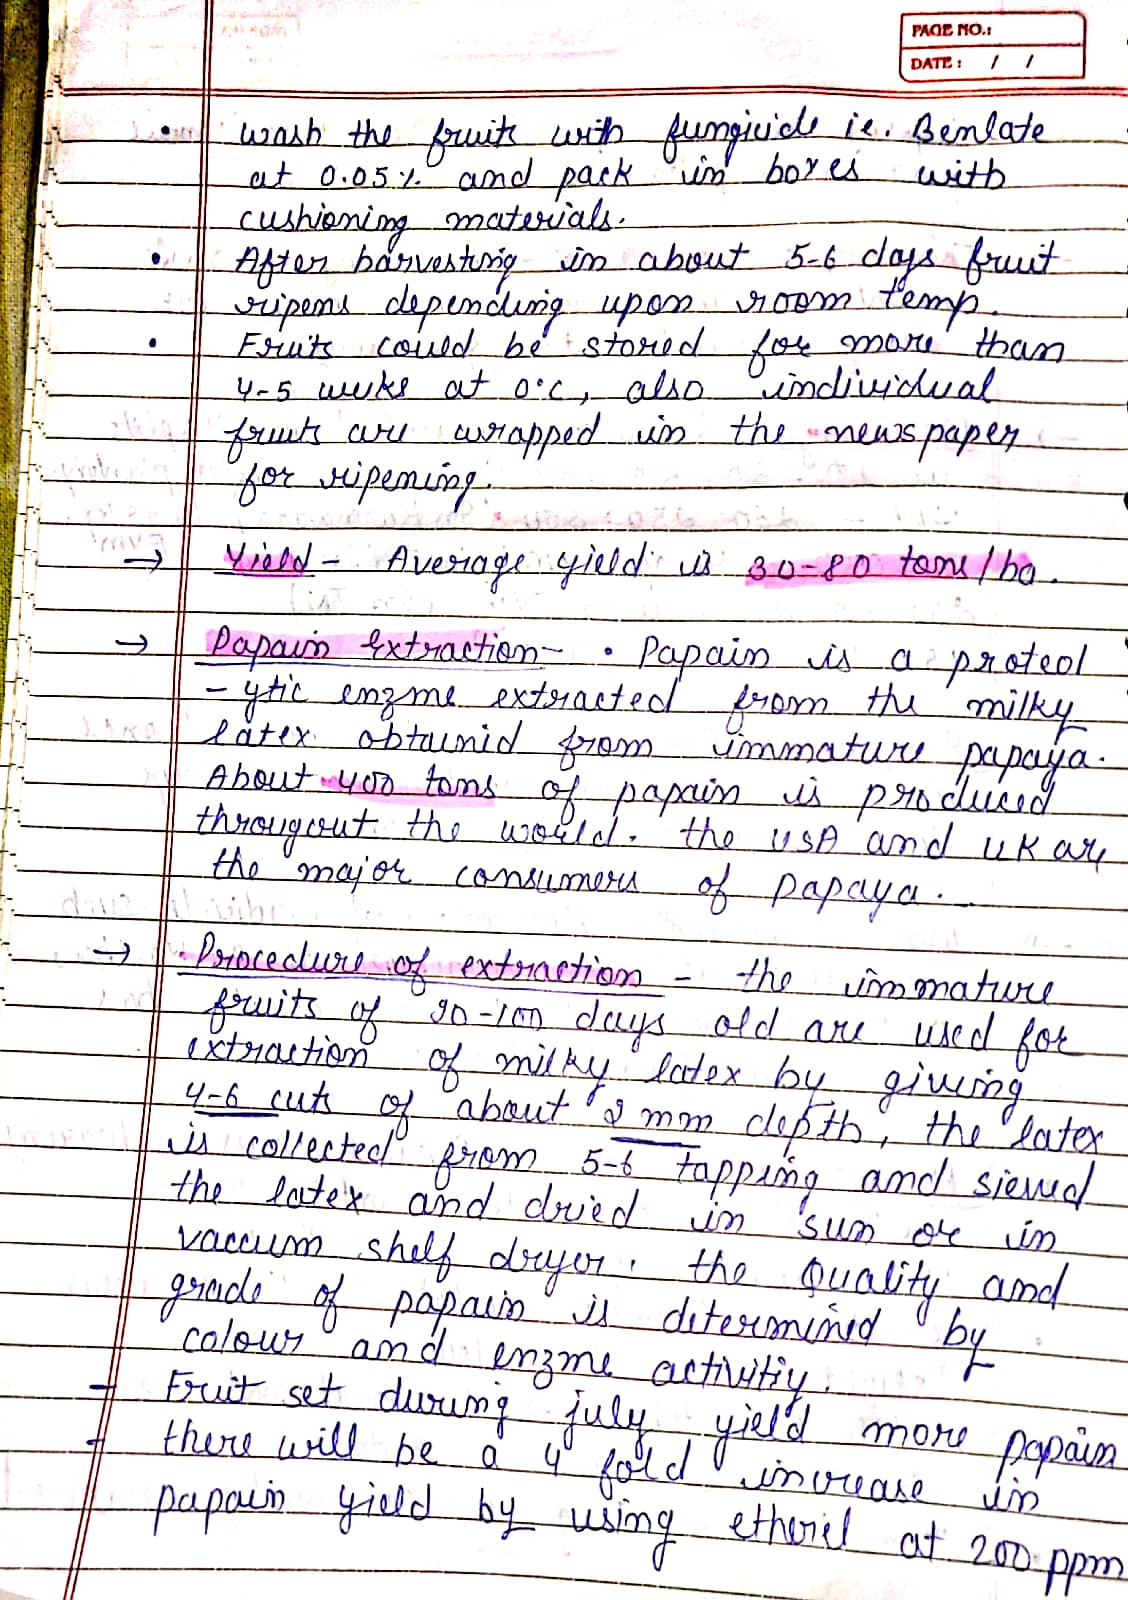 PAGE NO.:
DATE: / /
• wash the fruits with fungicide ie. Benlate
at 0.05%. and pack in boxes with
cushioning materials.
• After harvesting in about 5-6 days fruit
ripens depending upon room temp.
• Fruits could be stored for more than
4-5 weeks at 0°c, also individual
fruits are wrapped in the newspaper
for ripening.
→ Yield - Average yield is 30-80 tons/ha.
→ Papain Extraction - • Papain is a proteol
- ytic enzme extracted from the milky
latex obtainid from immature papaya.
About 400 tons of papain is produced
througout the world. the USA and UK are
the major consumers of papaya.
→ Procedure of extraction - the immature
fruits of 90-100 days old are used for
extraction of milky latex by giving
4-6 cuts of about 2 mm depth, the latex
is collected from 5-6 tapping and sieved
the latex and dried in sun or in
vaccum shelf dryer. the Quality and
grade of papain is determined by
colour and enzme activitiy.
→ Fruit set during july yield more papain
→ there will be a 4 fold increase in
papain yield by using etherel at 200 ppm